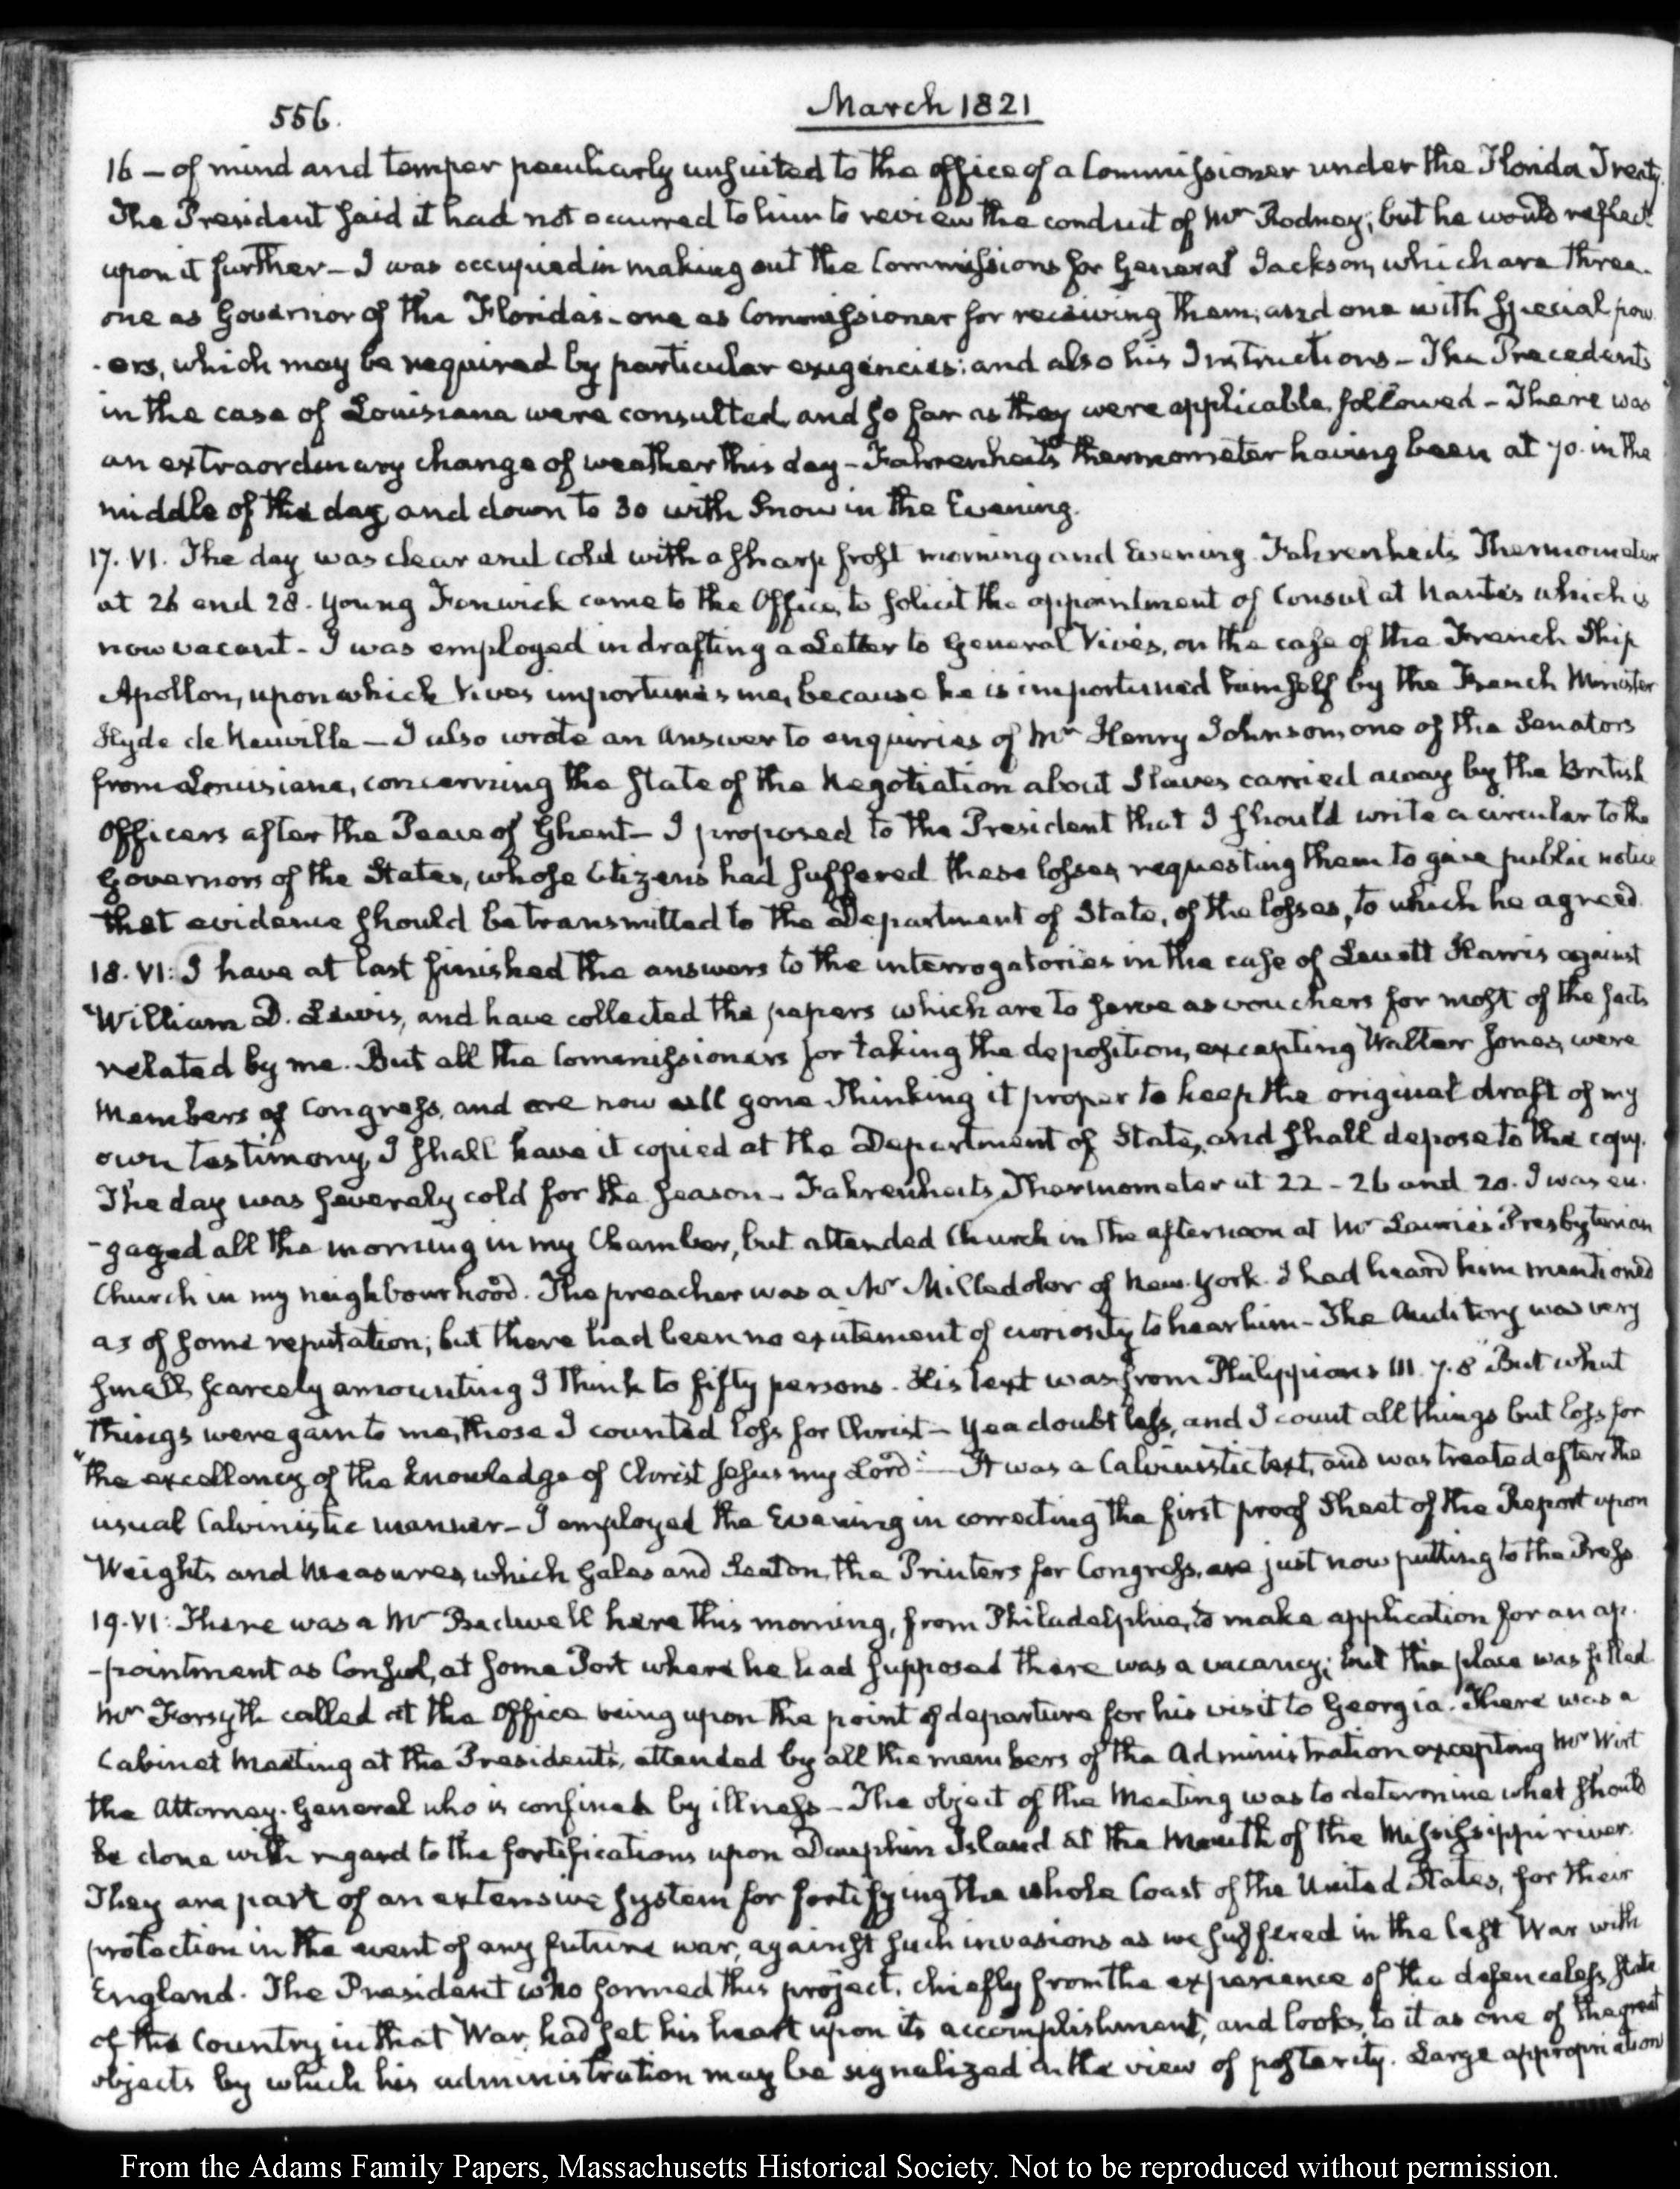 556.
March 1821
16 — of mind and temper peculiarly unsuited to the office of a Commissioner under the Florida Treaty.
The President said it had not occurred to him to review the conduct of Mr Rodney; but he would reflect
upon it further — I was occupied in making out the Commissions for General Jackson, which are three.
one as Governor of the Floridas - one as Commissioner for receiving them; and one with special pow
-ers, which may be required by particular exigencies: and also his Instructions — The Precedents
in the case of Louisiana were consulted, and so far as they were applicable, followed — There was
an extraordinary change of weather this day — Fahrenheit's thermometer having been at 70. in the
middle of the day, and down to 30 with Snow in the Evening.
17. VI. The day was clear and cold with a sharp frost morning and Evening. Fahrenheits Thermometer
at 26 and 28. Young Fenwick came to the Office, to solicit the appointment of Consul at Nantes which is
now vacant — I was employed in drafting a Letter to General Vivés, on the case of the French Ship
Apollon, upon which Vives importunes me, because he is importuned himself by the French Minister
Hyde de Neuville — I also wrote an answer to enquiries of Mr Henry Johnson, one of the Senators
from Louisiana, concerning the state of the Negotiation about Slaves carried away by the British
Officers after the Peace of Ghent — I proposed to the President that I should write a circular to the
Governors of the States, whose Citizens had suffered these losses, requesting them to give public notice
that evidence should be transmitted to the Department of State, of the losses, to which he agreed.
18. VI: I have at last finished the answers to the interrogatories in the case of Levett Harris against
William D. Lewis, and have collected the papers which are to serve as vouchers for most of the facts
related by me. But all the Commissioners for taking the deposition, excepting Walter Jones, were
Members of Congress, and are now all gone. Thinking it proper to keep the original draft of my
own testimony, I shall have it copied at the Department of State, and shall depose to the copy.
The day was severely cold for the season — Fahrenheits Thermometer at 22 - 26 and 20. I was en-
-gaged all the morning in my Chamber, but attended Church in the afternoon at Mr Laurie's Presbyterian
Church in my neighbourhood. The preacher was a Mr Milledoler of New-York. I had heard him mentioned
as of some reputation; but there had been no excitement of curiosity to hear him — The Auditory was very
small, scarcely amounting I think to fifty persons. His text was from Philippians III. 7. 8 "But what
things were gain to me, those I counted loss for Christ — Yea doubtless, and I count all things but loss for
"the excellency of the knowledge of Christ Jesus my Lord" — It was a Calvinistic text, and was treated after the
usual Calvinistic manner — I employed the Evening in correcting the first proof Sheet of the Report upon
Weights and Measures, which Gales and Seaton, the Printers for Congress, are just now putting to the Press.
19. VI: There was a Mr Badwell here this morning, from Philadelphia, to make application for an ap-
-pointment as Consul, at some Port where he had supposed there was a vacancy; but the place was filled.
Mr Forsyth called at the Office being upon the point of departure for his visit to Georgia. There was a
Cabinet Meeting at the President's, attended by all the members of the Administration excepting Mr Wirt
the Attorney-General who is confined by illness — The object of the Meeting was to determine what should
be done with regard to the fortifications upon Dauphin Island at the Mouth of the Mississippi river.
They are part of an extensive system for fortifying the whole Coast of the United States, for their
protection in the event of any future war, against such invasions as we suffered in the last War with
England. The President who formed this project, chiefly from the experience of the defenceless state
of the Country in that War, had set his heart upon its accomplishment, and looks to it as one of the great
objects by which his administration may be signalized in the view of posterity. Large appropriation
From the Adams Family Papers, Massachusetts Historical Society. Not to be reproduced without permission.